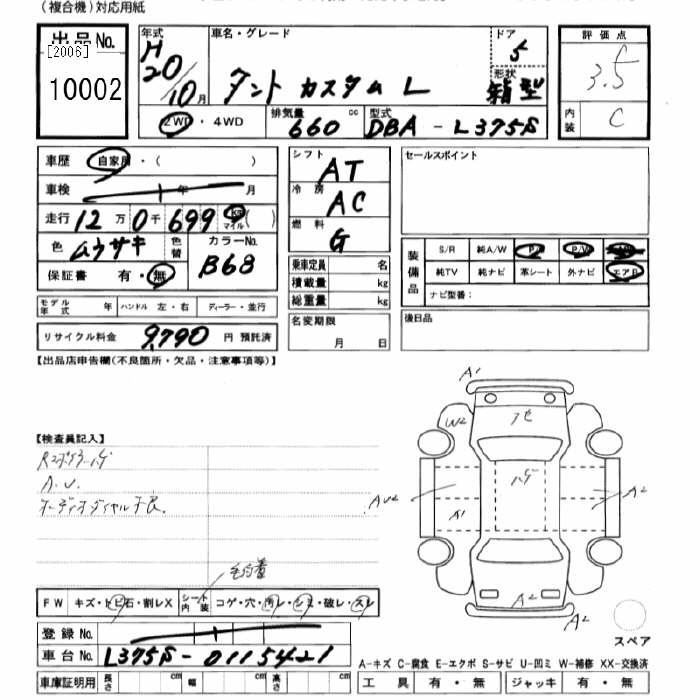 (複合機)対応用紙
出品No. [2006] 10002
年式 H20/10月
車名・グレード タント カスタム L
ドア 5
形状 箱型
2WD・4WD
排気量 660 cc
型式 DBA-L375S
評価点 3.5
内装 C
車歴 自家用・( )
車検 年 月
走行 12万0千699 Km マイル( )
色 ムラサキ 色替
カラーNo. B68
保証書 有・無
シフト AT
冷房 AC
燃料 G
乗車定員 名
積載量 kg
総重量 kg
セールスポイント
装備品 S/R 純A/W P/S P/W
純TV 純ナビ 革シート 外ナビ エアB
ナビ型番:
モデル年式 年 ハンドル 左・右 ディーラー・並行
リサイクル料金 9,790 円 預託済
名変期限 月 日
後日品
【出品店申告欄(不良箇所・欠品・注意事項等)】
【検査員記入】
A.U.
オーディオダイヤル不良
FW キズ・トビ石・割レX シート内装 コゲ・穴・汚レ・シミ・破レ・スレ
登録No.
車台No. L375S-0115421
車庫証明用 長さ cm 幅 cm 高さ cm
A1
W2
アセ
ハゲ
AU2
A1
A2
A2
A2
A2
スペア
A-キズ C-腐食 E-エクボ S-サビ U-凹ミ W-補修 XX-交換済
工具 有・無 ジャッキ 有・無